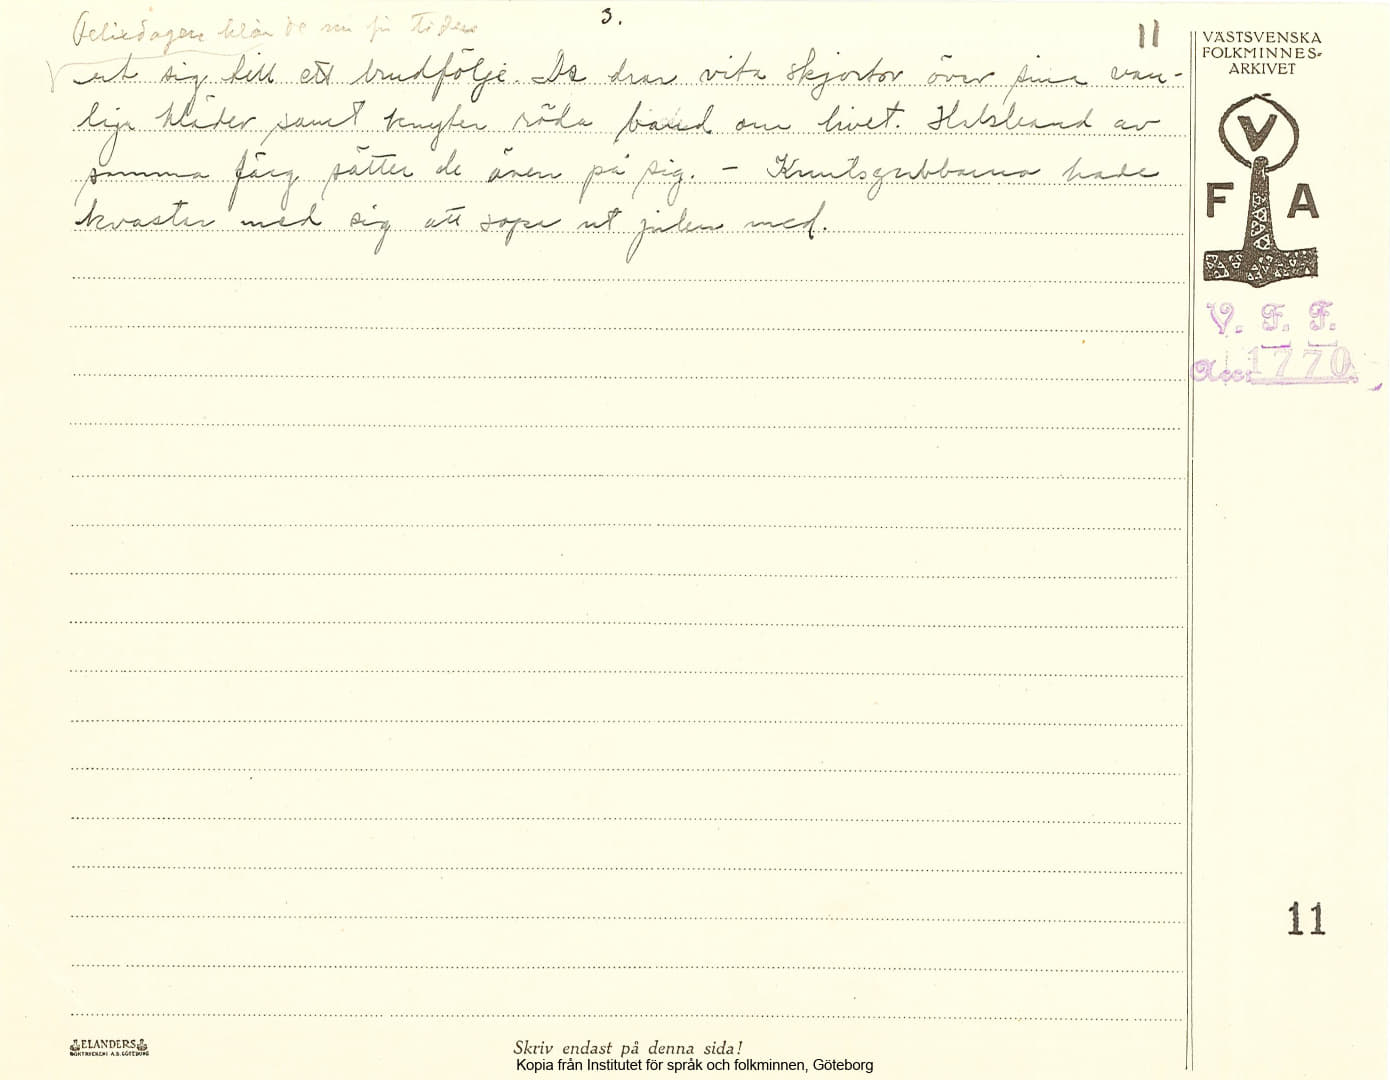 3.
11
klär de nu för tiden
ut sig till ett brudfölje. De drar vita skjortor över sina van-
liga kläder samt knyter röda band om livet. Halsband av
samma färg sätter de även på sig. – Knutsgubbarna hade
kvastar med sig att sopa ut julen med.
VÄSTSVENSKA
FOLKMINNES-
ARKIVET
V
F A
V. F. F.
Acc. 1770
11
ELANDERS
BOKTRYCKERI A.B. GÖTEBORG
Skriv endast på denna sida!
Kopia från Institutet för språk och folkminnen, Göteborg